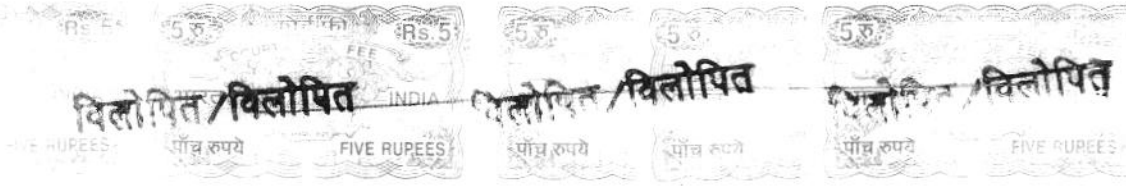 Rs. 5 5 रु Rs. 5 5 रु 5 रु 5 रु
FEE
विलोपित /विलोपित INDIA विलोपित /विलोपित विलोपित /विलोपित
RUPEES पाँच रुपये FIVE RUPEES पाँच रुपये पाँच रुपये पाँच रुपये FIVE RUPEES